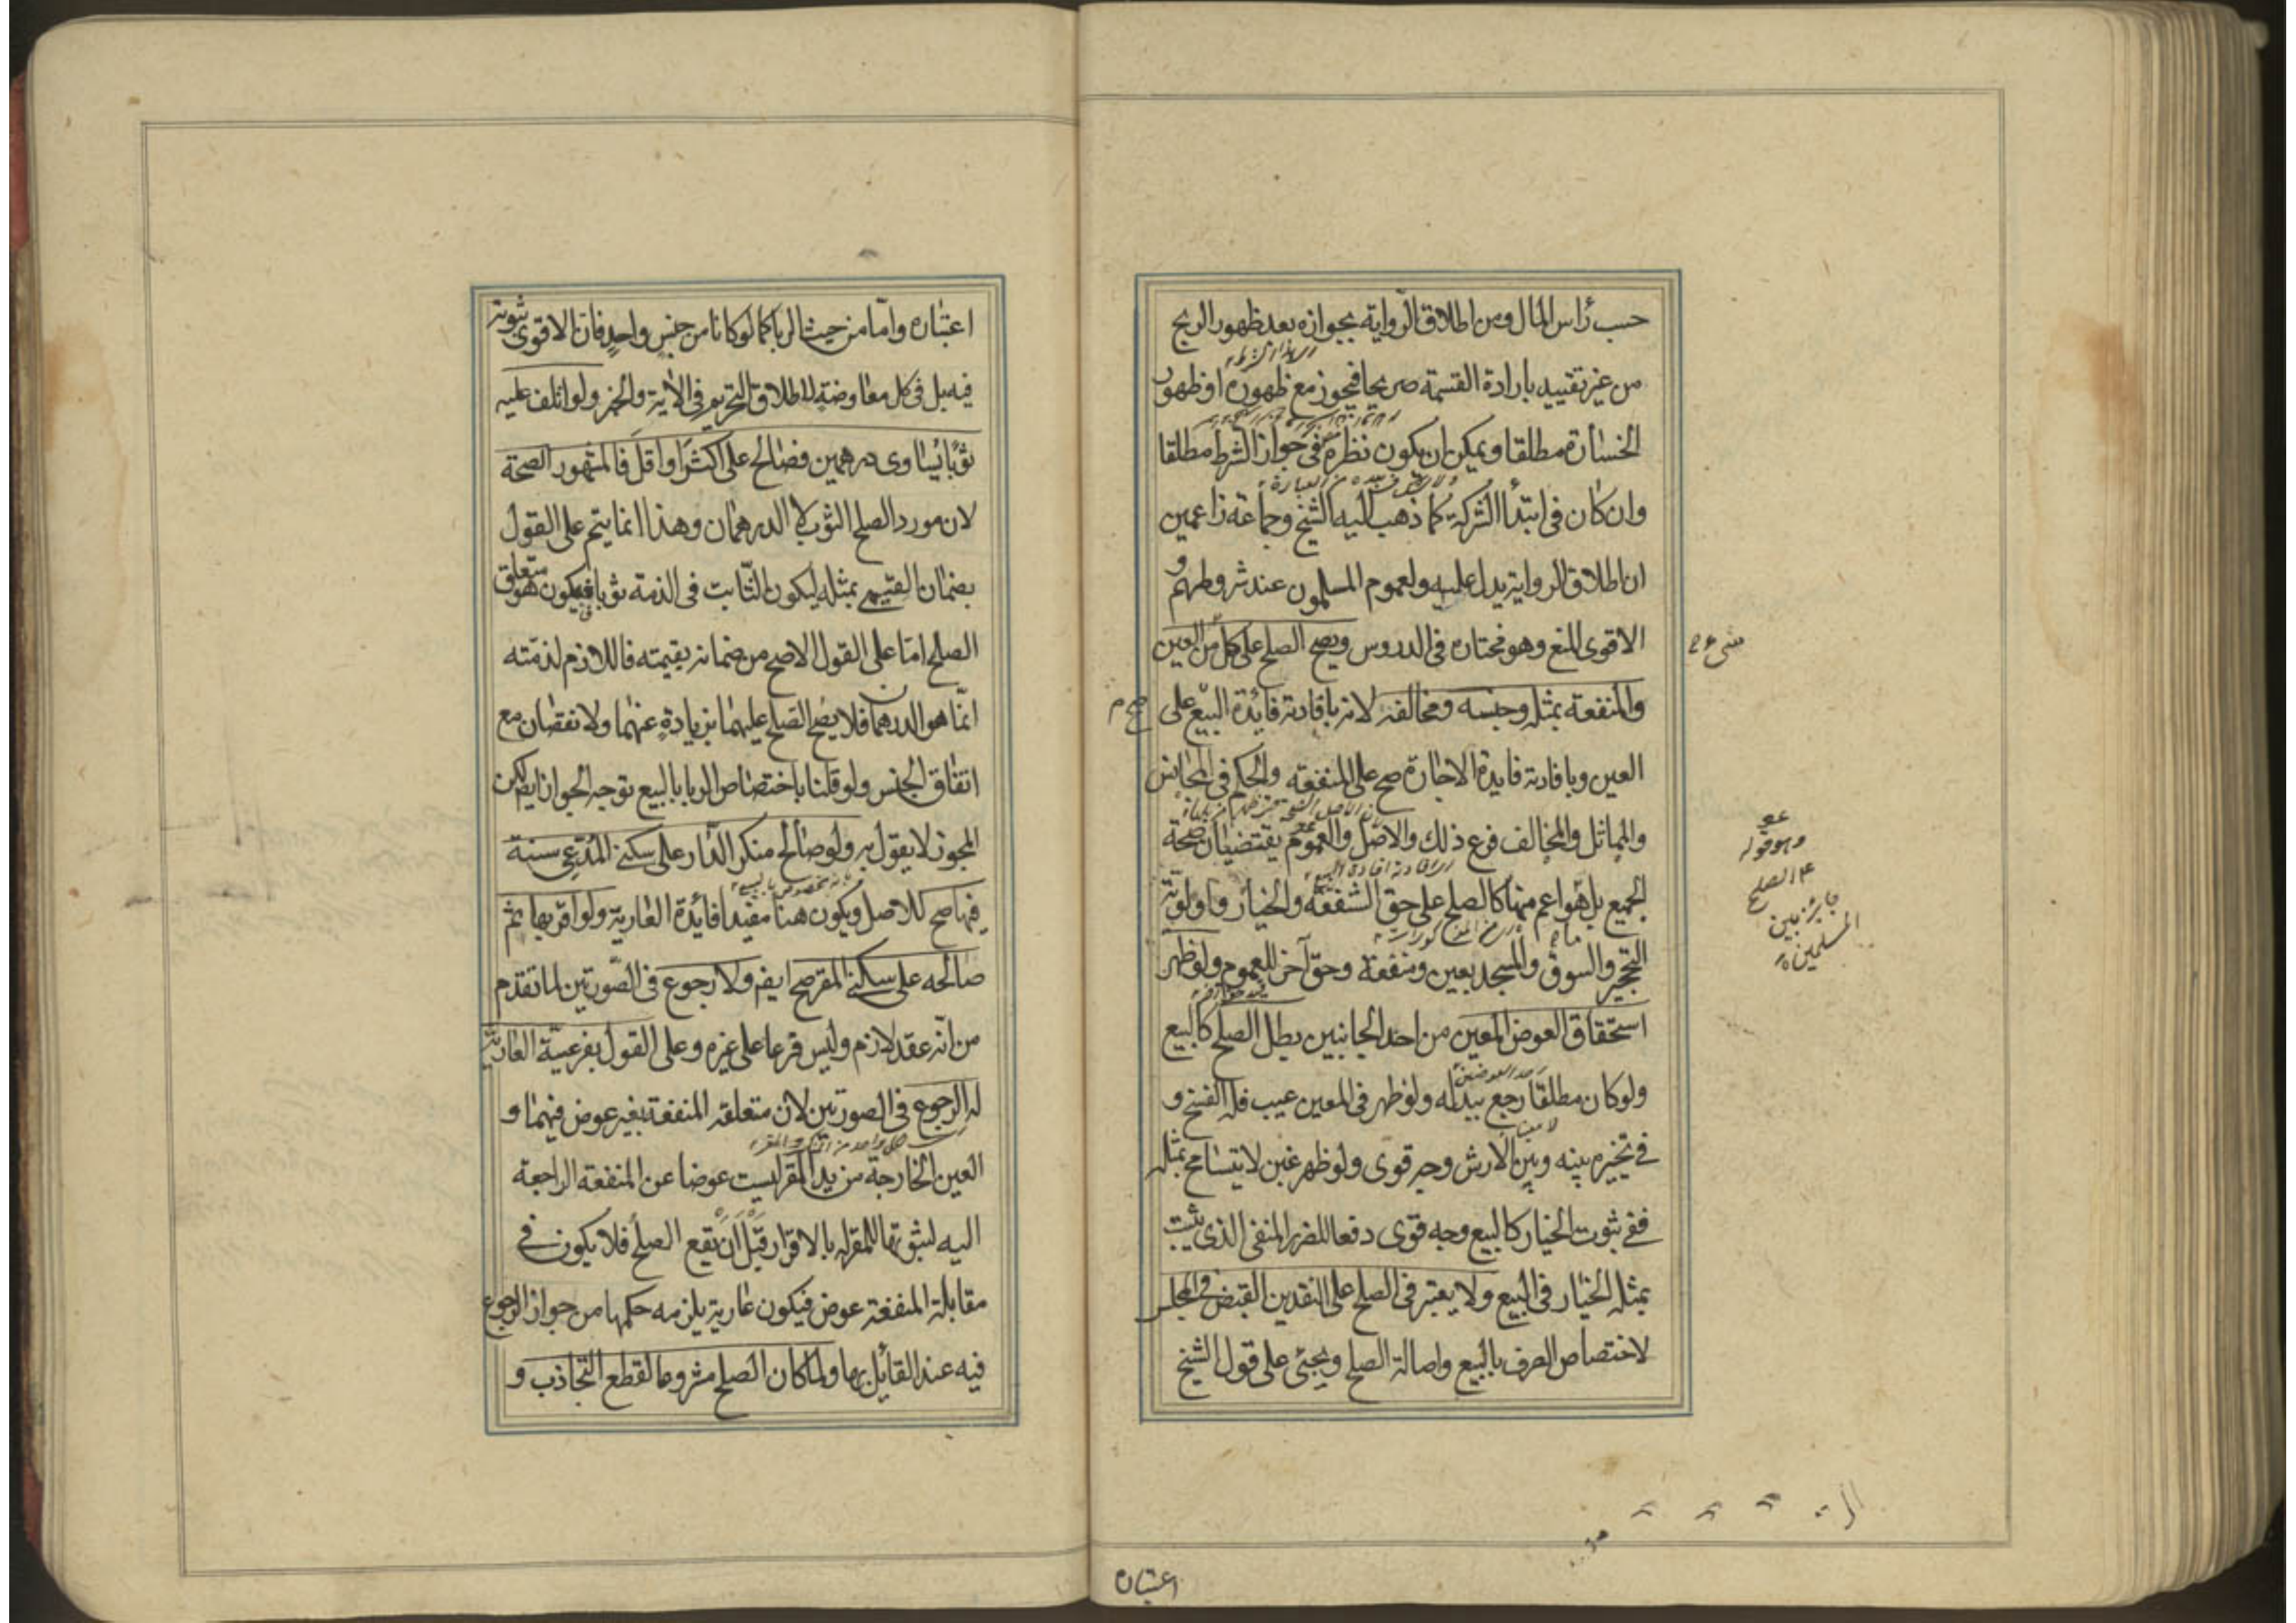 حسب رأس المال ومن اطلاق الرواية بجوازه بعد ظهور الربح
من غير تقييد بارادة القسمة صريحا فيجوز مع ظهوره او ظهور
الخسارة مطلقا ويمكن ان يكون نظره في جواز الشرط مطلقا
وان كان في ابتدأ الشركة كما ذهب اليه الشيخ وجماعة زاعمين
ان اطلاق الرواية يدل عليه ولعموم المسلمون عند شروطهم و
الاقوى المنع وهو مختاره في الدروس ويصح الصلح على كل من العين
والمنفعة بمثله وجنسه ومخالفه لانه بافادته فائدة البيع على
العين وبافادته فايدة الاجارة صح على المنفعة والحكم في المجانس
والمماثل والمخالف فرع ذلك والاصل والعموم يقتضيان صحة
الجميع بل هو اعم منهما كالصلح على حق الشفعة والخيار واولوية
التحجير والسوق والمسجد بعين ومنفعة وحق آخر للعموم ولو ظهر
استحقاق العوض المعين من احد الجانبين بطل الصلح كالبيع
ولو كان مطلقا رجع ببدله ولو ظهر في المعين عيب فله الفسخ و
في تخييره بينه وبين الارش وجه قوى ولو ظهر غبن لا يتسامح بمثله
ففي ثبوت الخيار كالبيع وجه قوى دفعا للضرر المنفى الذى يثبت
بمثله الخيار في البيع ولا يعتبر في الصلح على النقدين القبض في المجلس
لاختصاص الصرف بالبيع واصالة الصلح ويجئ على قول الشيخ
وهو قوله
ع الصلح
جايز بين
المسلمين
اعتباره
اعتباره واما من حيث الربا كما لو كانا من جنس واحد فان الاقوى ثبوته
فيه بل في كل معاوضة لاطلاق التحريم في الاية والخبر ولو اتلف عليه
ثوبا يساوى درهمين فصالح على اكثر او اقل فالمشهور الصحة
لان مورد الصلح الثوب لا الدرهمان وهذا انما يتم على القول
بضمان القيمى بمثله ليكون الثابت في الذمة ثوبا فيكون هو متعلق
الصلح اما على القول الاصح من ضمانه بقيمته فاللازم لذمته
انما هو الدرهمان فلا يصح الصلح عليهما بزيادة عنهما ولا نقصان مع
اتفاق الجنس ولو قلنا باختصاص الربا بالبيع توجه الجواز ايضا لكن
المجوز لا يقول به ولو صالح منكر الدار على سكنى المدعى سنة
فيها صح للاصل ويكون هنا مفيدا فائدة العارية ولو اقر بها ثم
صالحه على سكنى المقر صح ايضا ولا رجوع في الصورتين لما تقدم
من انه عقد لازم وليس فرعا على غيره وعلى القول بفرعية العارية
له الرجوع في الصورتين لان متعلقه المنفعة بغير عوض فيهما و
العين الخارجة من يد المقر ليست عوضا عن المنفعة الراجعة
اليه لثبوتها للمقر له بالاقرار قبل ان يقع الصلح فلا يكون في
مقابلة المنفعة عوض فيكون عارية يلزمه حكمها من جواز الرجوع
فيه عند القائل بها ولما كان الصلح مشروعا لقطع التجاذب و